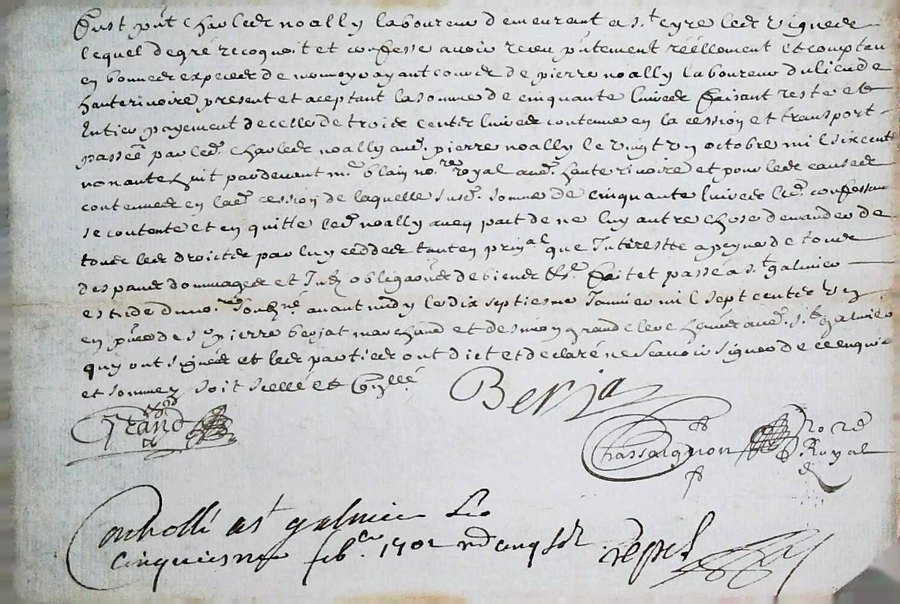 Fust p̃nt Charles noally laboureur demeurant a st eyre les vignes
lequel de gre recognoit et confesse avoir receu p̃ntement réellement et comptan
en bonnes especes de monnoy ayant cours de pierre noally laboureur du lieu de
hauterivoire present et aceptant la somme de cinquante livres faisant reste et
entier payement de celle de trois centz livres contenue en la cession et transport
passée par led. Charles noally aud. pierre noally le vingt un octobre mil six centz
nonante huit pardevant me blain nore royal aud. hauterivoire et pour les causes
contenues en lad. cession de laquelle susd. somme de cinquante livres led. confessant
se contente et en quitte led. noally avec pact de ne luy autre chose demander de
tous les droictz par luy ceddés tant en prinal que Interestz a peyne de tous
despans dommages et Intz obligaõns de biens &c. fait et passé a st galmier
estude du nore soubzné avant midy le dix septiesme Janvier mil sept centz un
en p̃nce de sr pierre berjat marchand et de simon grand clerc aud. st galmier
quy ont signés et les parties ont dict et declaré ne scavoir signer de ce enquis
et sommez soit scellé et
Berja
Grand
Chassaignon nore
Royal
Controllé a st galmier le
cinquiesme feb. 1701